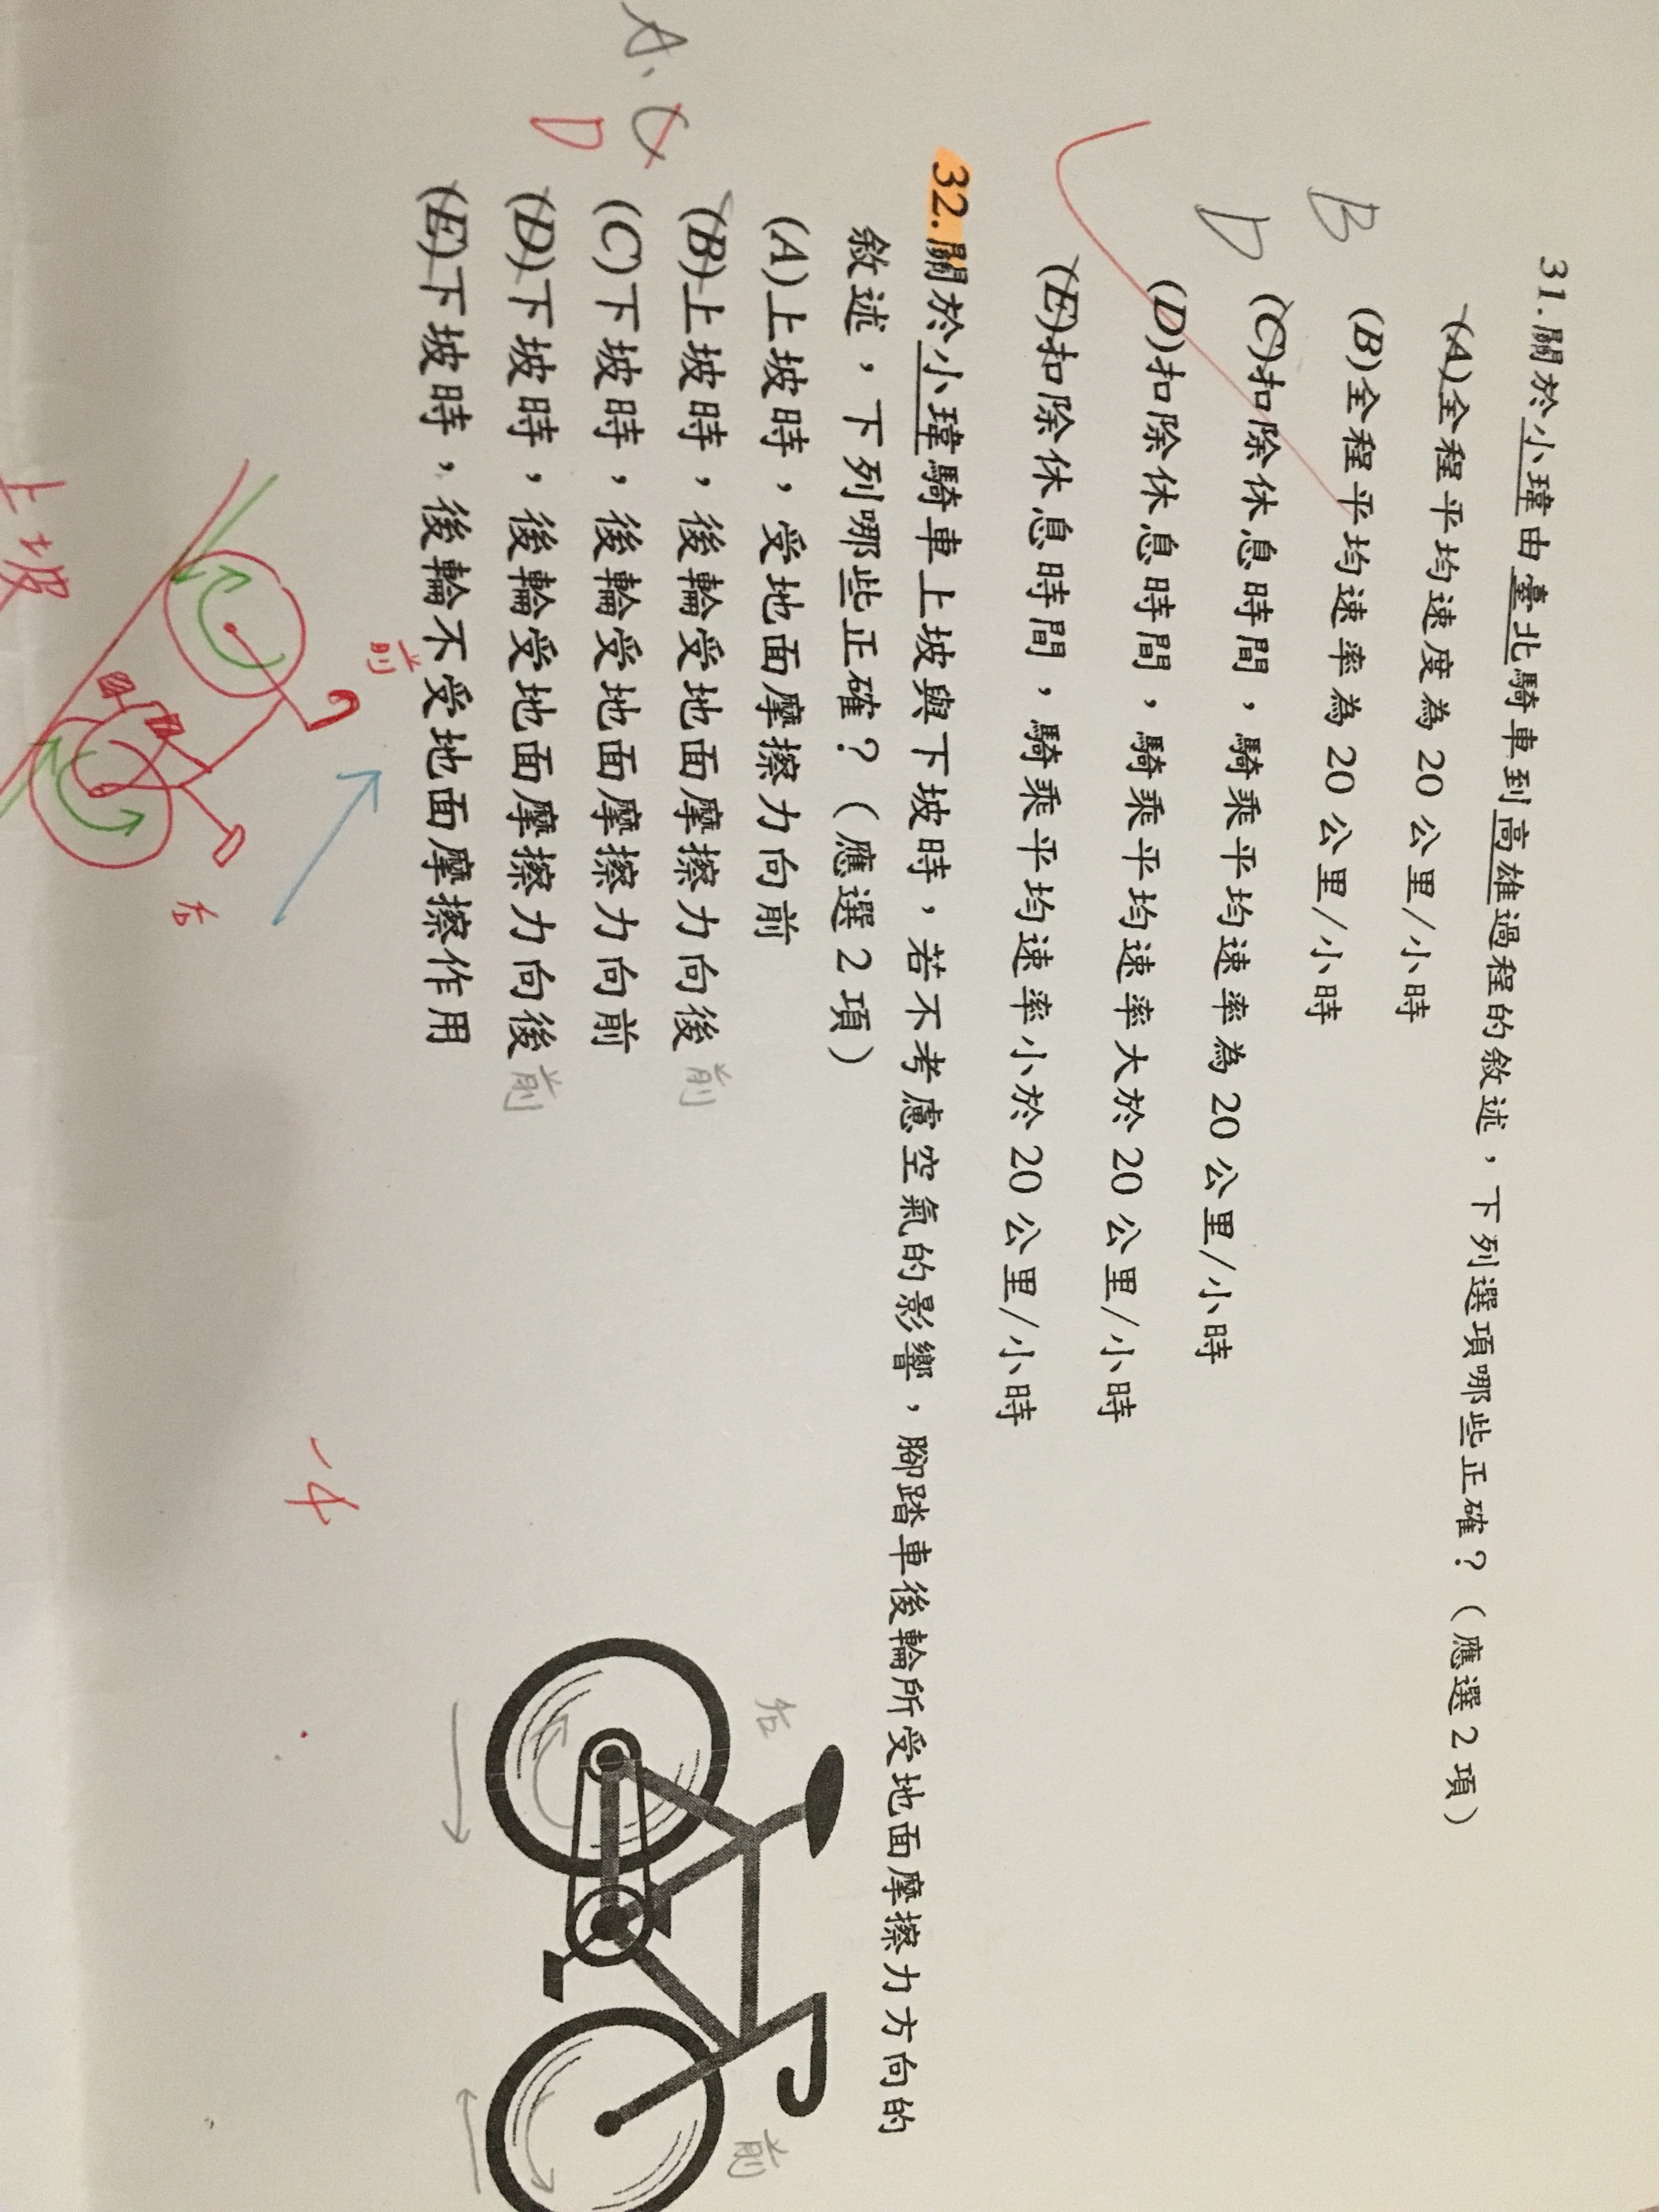 31.關於小瑋由臺北騎車到高雄過程的敘述,下列選項哪些正確?(應選2項)
B
D
(A)全程平均速度為 20 公里/小時
(B)全程平均速率為 20 公里/小時
(C)扣除休息時間,騎乘平均速率為 20 公里/小時
(D)扣除休息時間,騎乘平均速率大於 20 公里/小時
(E)扣除休息時間,騎乘平均速率小於 20 公里/小時
32.關於小瑋騎車上坡與下坡時,若不考慮空氣的影響,腳踏車後輪所受地面摩擦力方向的
敘述,下列哪些正確?(應選2項)
A、C
D
(A)上坡時,受地面摩擦力向前
(B)上坡時,後輪受地面摩擦力向後 前
(C)下坡時,後輪受地面摩擦力向前
(D)下坡時,後輪受地面摩擦力向後 前
(E)下坡時,後輪不受地面摩擦作用
后
前
前
后
上坡
-4